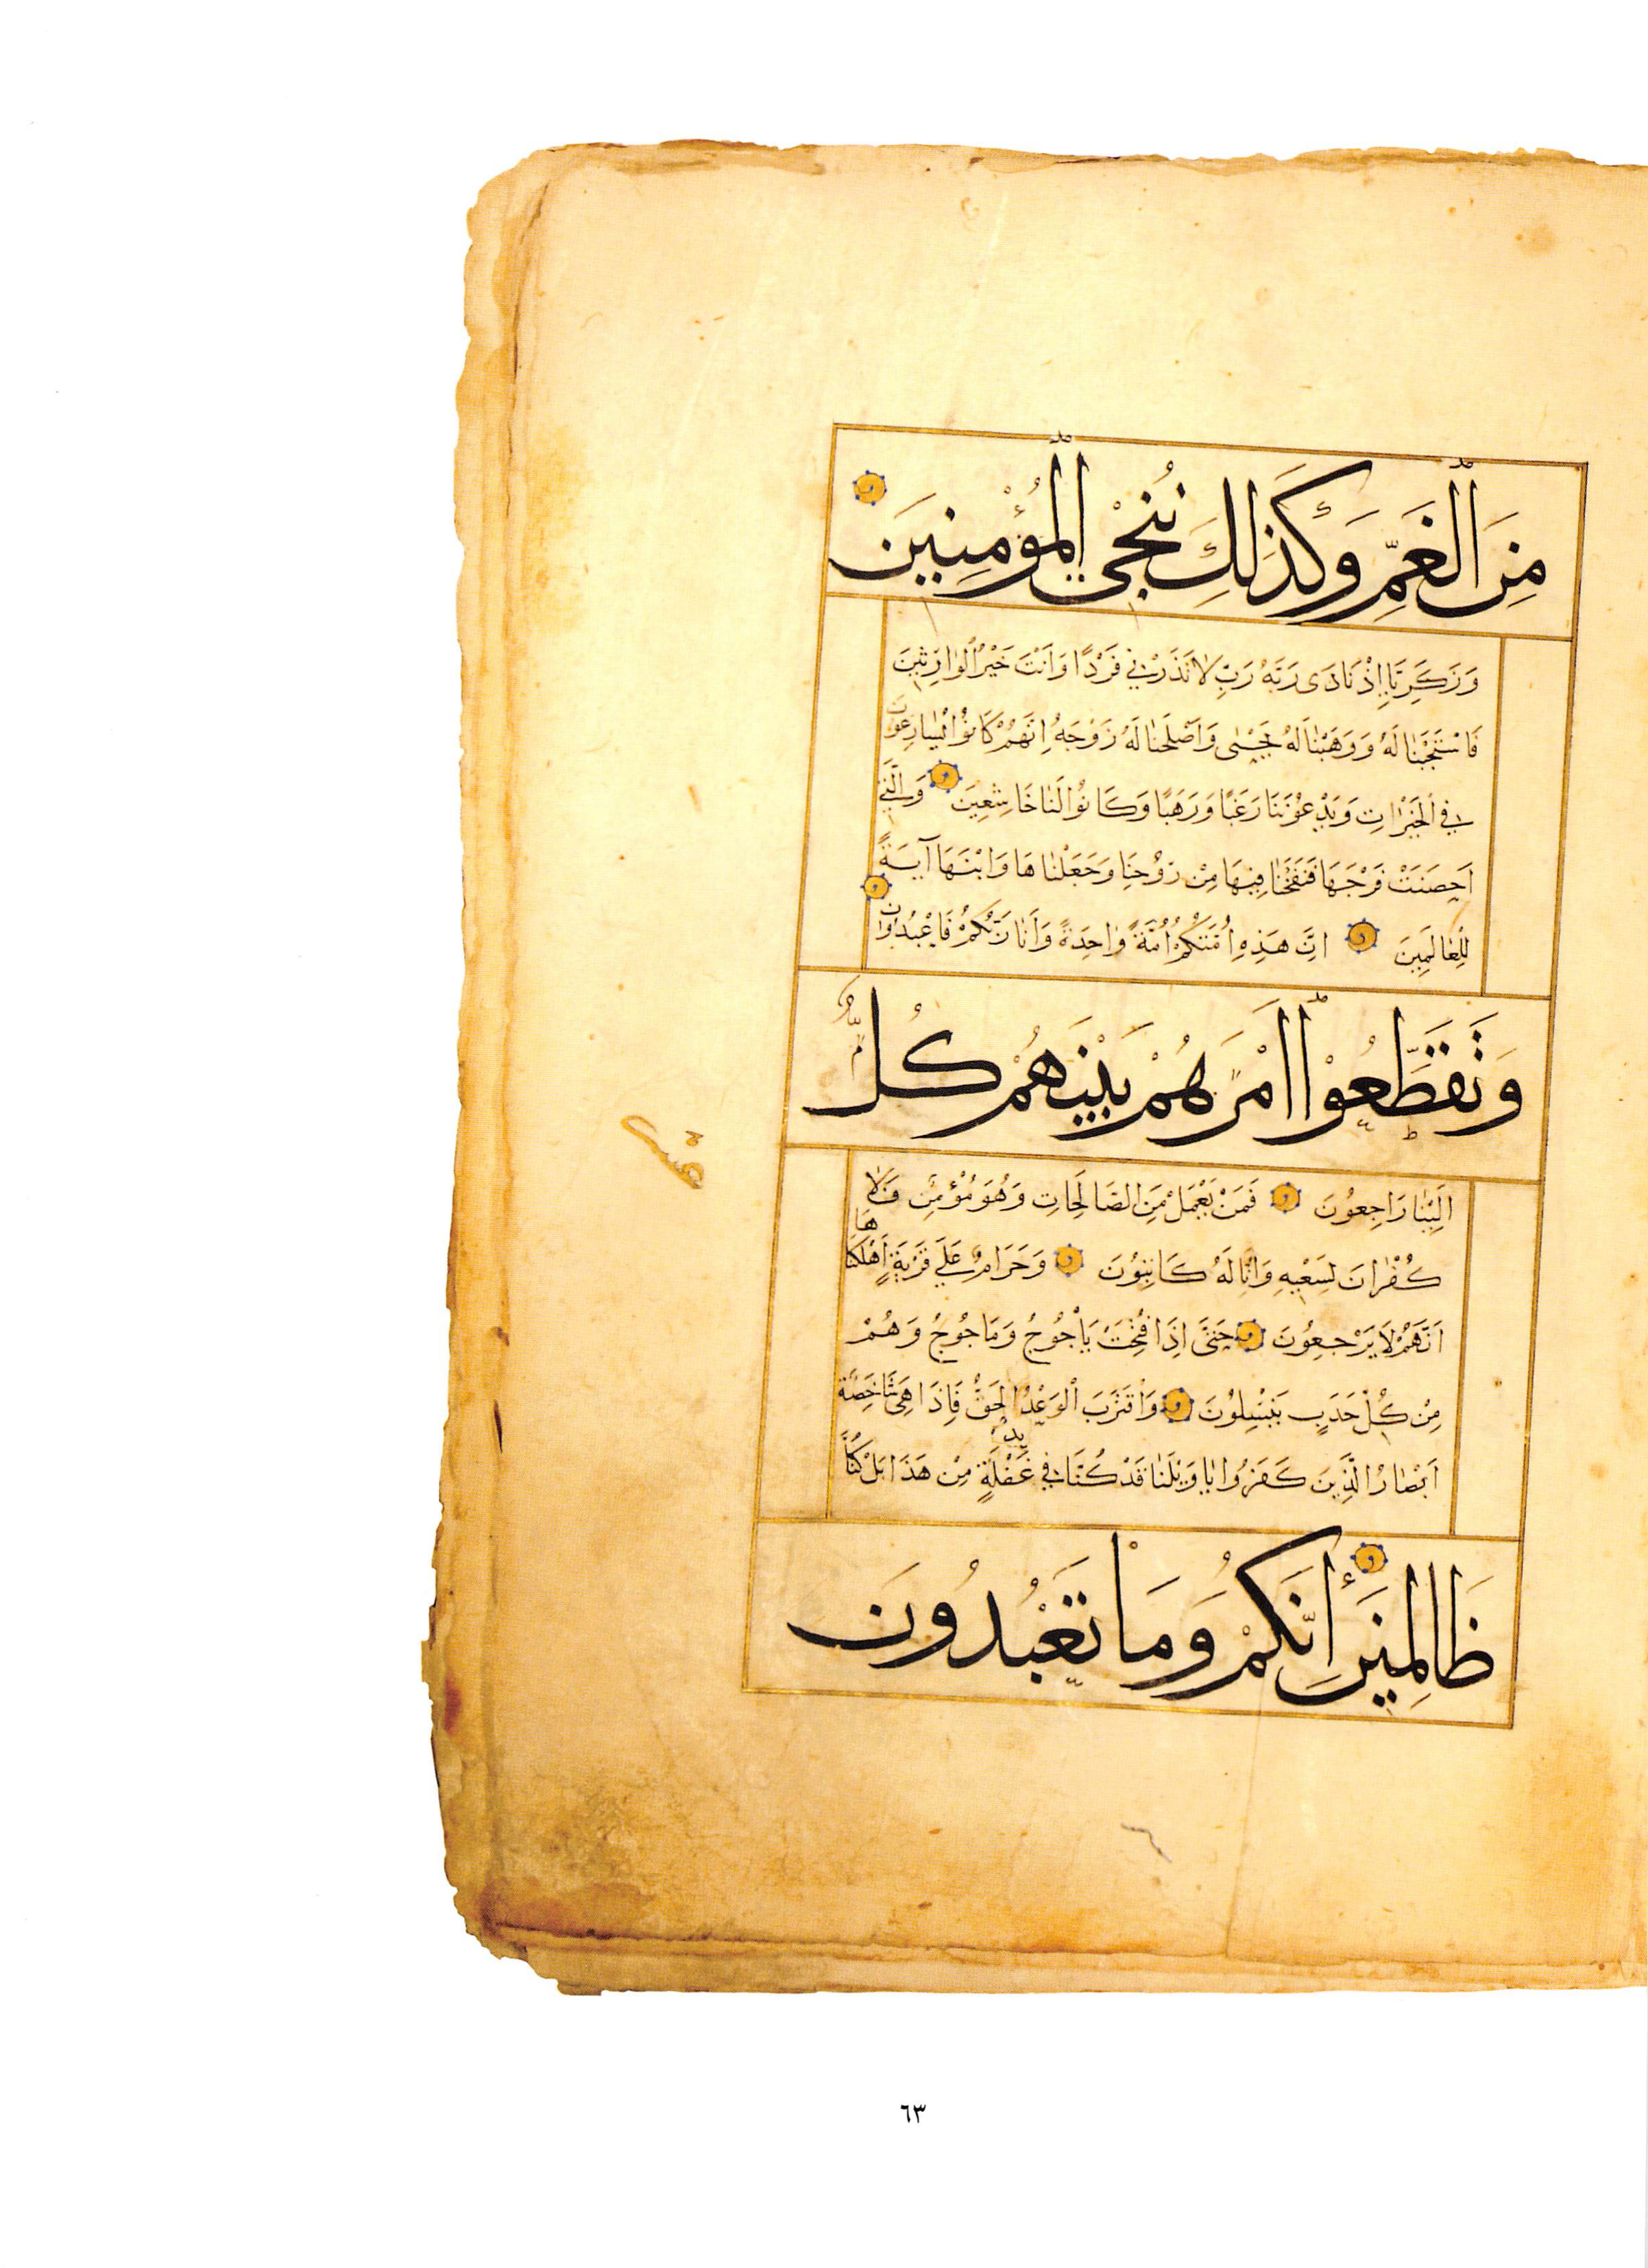 مِنَ الْغَمِّ وَكَذَلِكَ نُنْجِي الْمُؤْمِنِينَ
وَزَكَرِيَّا إِذْ نَادَى رَبَّهُ رَبِّ لَا تَذَرْنِي فَرْدًا وَأَنْتَ خَيْرُ الْوَارِثِينَ
فَاسْتَجَبْنَا لَهُ وَوَهَبْنَا لَهُ يَحْيَى وَأَصْلَحْنَا لَهُ زَوْجَهُ إِنَّهُمْ كَانُوا يُسَارِعُونَ
فِي الْخَيْرَاتِ وَيَدْعُونَنَا رَغَبًا وَرَهَبًا وَكَانُوا لَنَا خَاشِعِينَ وَالَّتِي
أَحْصَنَتْ فَرْجَهَا فَنَفَخْنَا فِيهَا مِنْ رُوحِنَا وَجَعَلْنَاهَا وَابْنَهَا آيَةً
لِلْعَالَمِينَ إِنَّ هَذِهِ أُمَّتُكُمْ أُمَّةً وَاحِدَةً وَأَنَا رَبُّكُمْ فَاعْبُدُونِ
وَتَقَطَّعُوا أَمْرَهُمْ بَيْنَهُمْ كُلٌّ
إِلَيْنَا رَاجِعُونَ فَمَنْ يَعْمَلْ مِنَ الصَّالِحَاتِ وَهُوَ مُؤْمِنٌ فَلَا
كُفْرَانَ لِسَعْيِهِ وَإِنَّا لَهُ كَاتِبُونَ وَحَرَامٌ عَلَى قَرْيَةٍ أَهْلَكْنَاهَا
أَنَّهُمْ لَا يَرْجِعُونَ حَتَّى إِذَا فُتِحَتْ يَأْجُوجُ وَمَاجُوجُ وَهُمْ
مِنْ كُلِّ حَدَبٍ يَنْسِلُونَ وَاقْتَرَبَ الْوَعْدُ الْحَقُّ فَإِذَا هِيَ شَاخِصَةٌ
أَبْصَارُ الَّذِينَ كَفَرُوا يَا وَيْلَنَا قَدْ كُنَّا فِي غَفْلَةٍ مِنْ هَذَا بَلْ كُنَّا
ظَالِمِينَ إِنَّكُمْ وَمَا تَعْبُدُونَ
٦٣